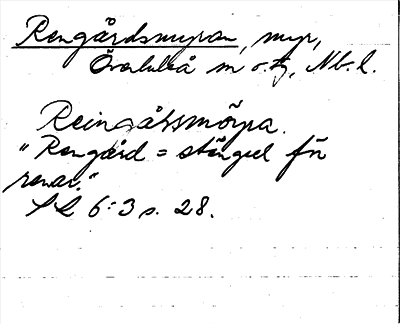 Rengårdsmyran, myr,
Överluleå sn o. tg, Nb. l.
Reingå̄ṣmöṛa.
"Rengård = stängsel för
renar."
SL 6:3 s. 28.